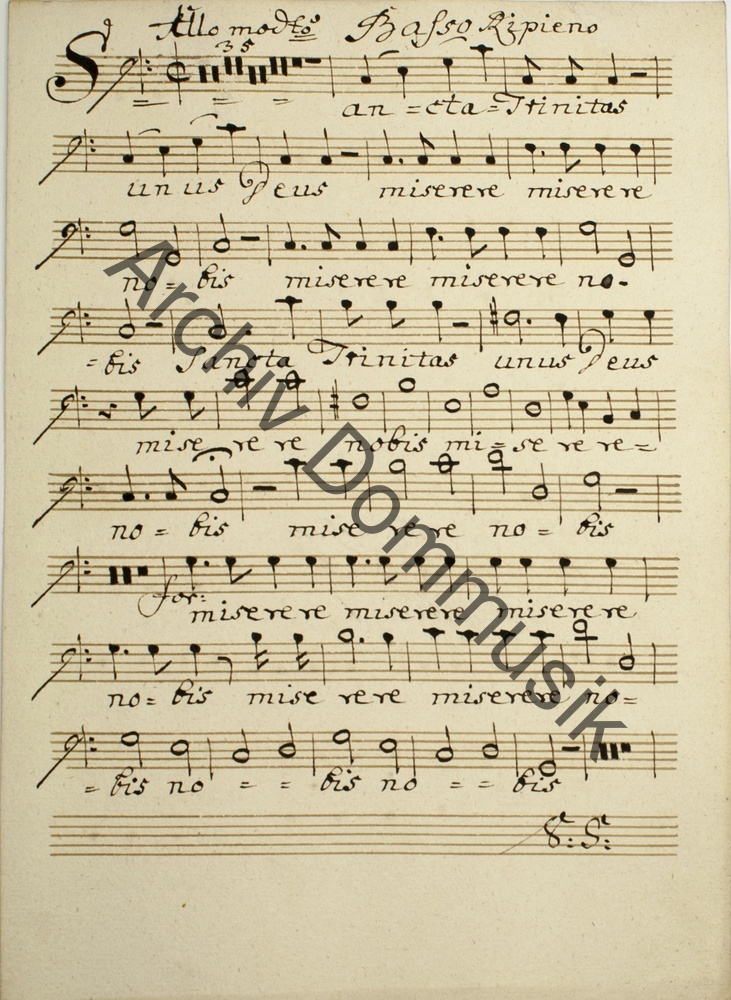 All.o modt.o Basso Ripieno
35
San = cta = Trinitas
unus Deus miserere miserere
no = bis miserere miserere no -
= bis Sancta Trinitas unus Deus
mise re re nobis mi = se re re =
no = bis mise re re no = bis
for:
miserere miserere miserere
no = bis mise rere miserere no =
= bis no = = bis no = = bis
Archiv Dommusik